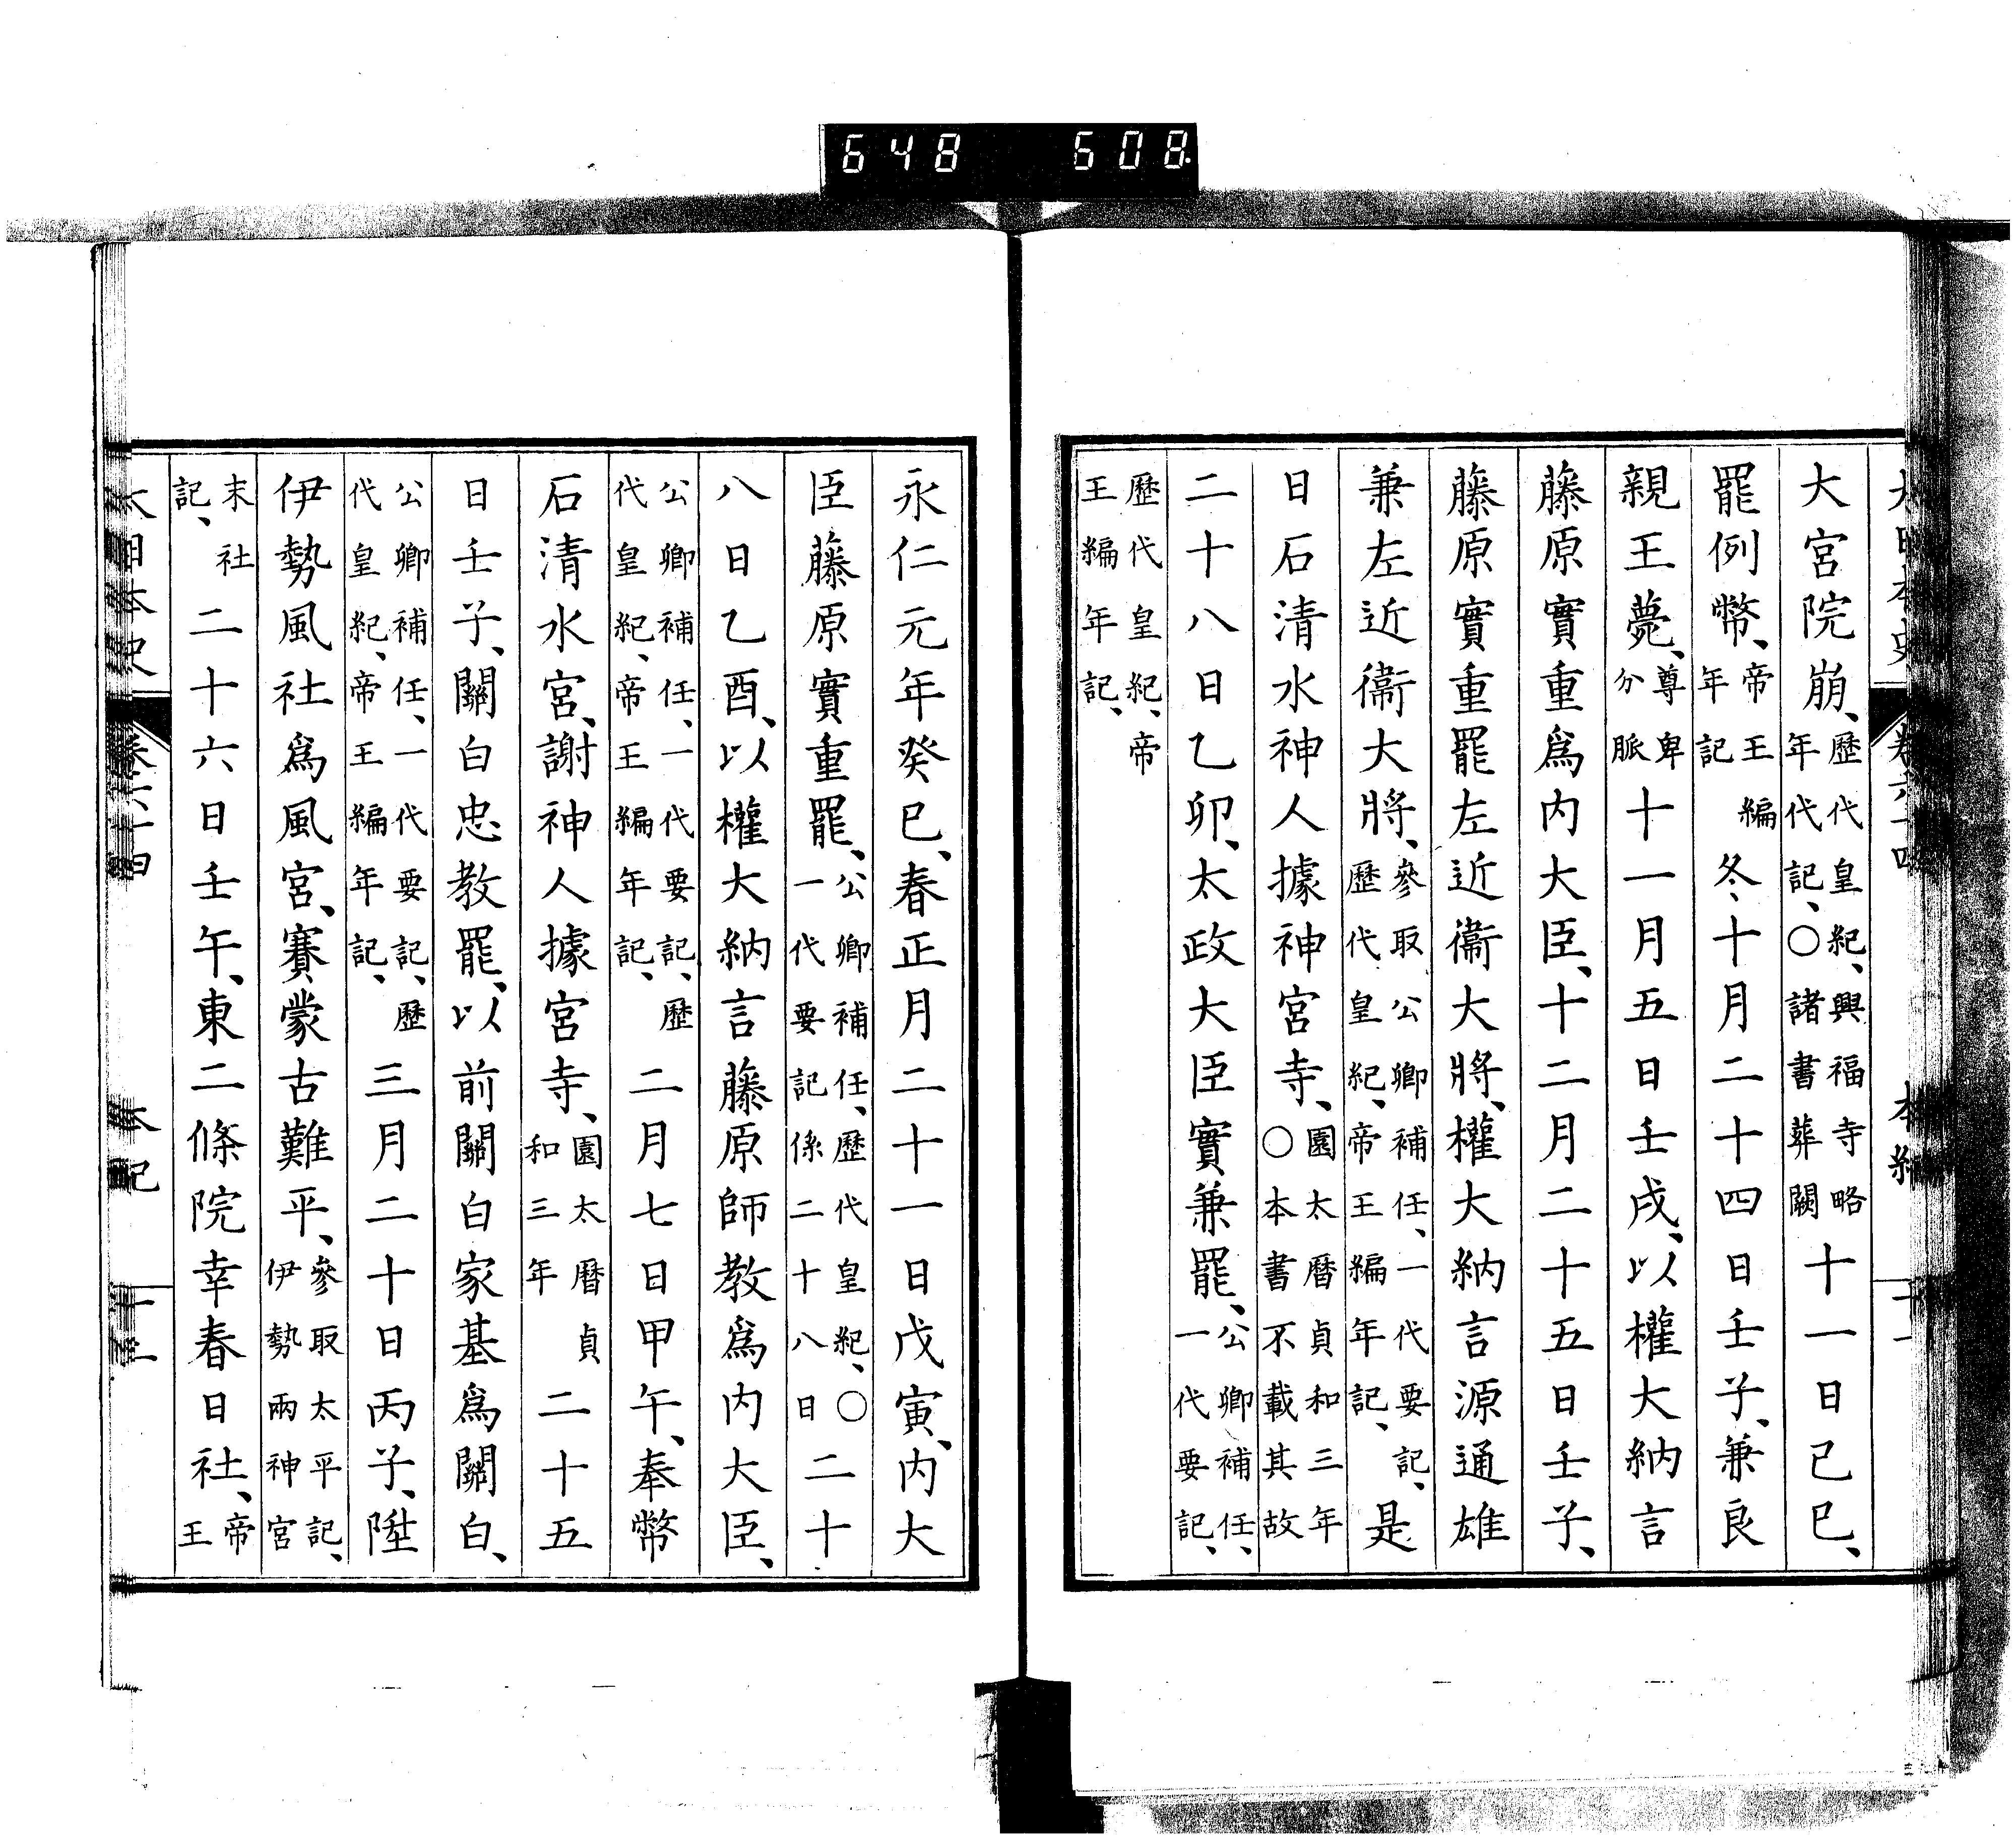 648 608
大宮院崩、歷代皇紀、興福寺略年代記、〇諸書葬闕十一日己巳、
罷例幣、帝王編年記冬、十月二十四日壬子、兼良
親王薨、尊卑分脈十一月五日壬戌、以權大納言
藤原實重爲内大臣、十二月二十五日壬子、
藤原實重罷左近衞大將、權大納言源通雄
兼左近衞大將、參取公卿補任、一代要記、歷代皇紀、帝王編年記、是
日石清水神人據神宮寺、園太曆貞和三年〇本書不載其故
二十八日乙卯、太政大臣實兼罷、公卿補任、一代要記、
歷代皇紀、帝王編年記、
永仁元年癸巳、春正月二十一日戊寅、内大
臣藤原實重罷、公卿補任、歷代皇紀、〇一代要記係二十八日二十
八日乙酉、以權大納言藤原師教爲内大臣、
公卿補任、一代要記、歷代皇紀、帝王編年記、二月七日甲午、奉幣
石清水宮、謝神人據宮寺、園太曆貞和三年二十五
日壬子、關白忠教罷、以前關白家基爲關白、
公卿補任、一代要記、歷代皇紀、帝王編年記、三月二十日丙子、陞
伊勢風社爲風宮、賽蒙古難平、參取太平記、伊勢兩神宮
末社記、二十六日壬午、東二條院幸春日社、帝王
大日本史 卷六十四 本紀